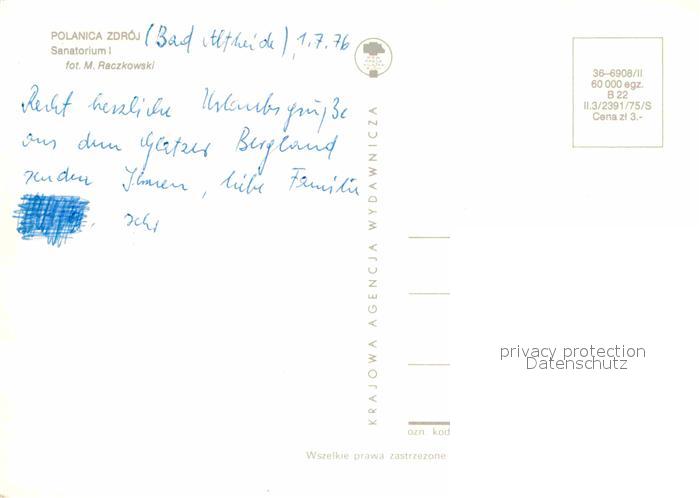 POLANICA ZDRÓJ (Bad Altheide) 1.7.76
Sanatorium I
fot. M. Raczkowski
Recht herzliche Urlaubsgrüße
aus dem Glatzer Bergland
senden Ihnen, liebe Familie
KRAJOWA AGENCJA WYDAWNICZA
36–6908/II
60 000 egz.
B 22
II.3/2391/75/S
Cena zł 3.-
privacy protection
Datenschutz
ozn. kod
Wszelkie prawa zastrzeżone